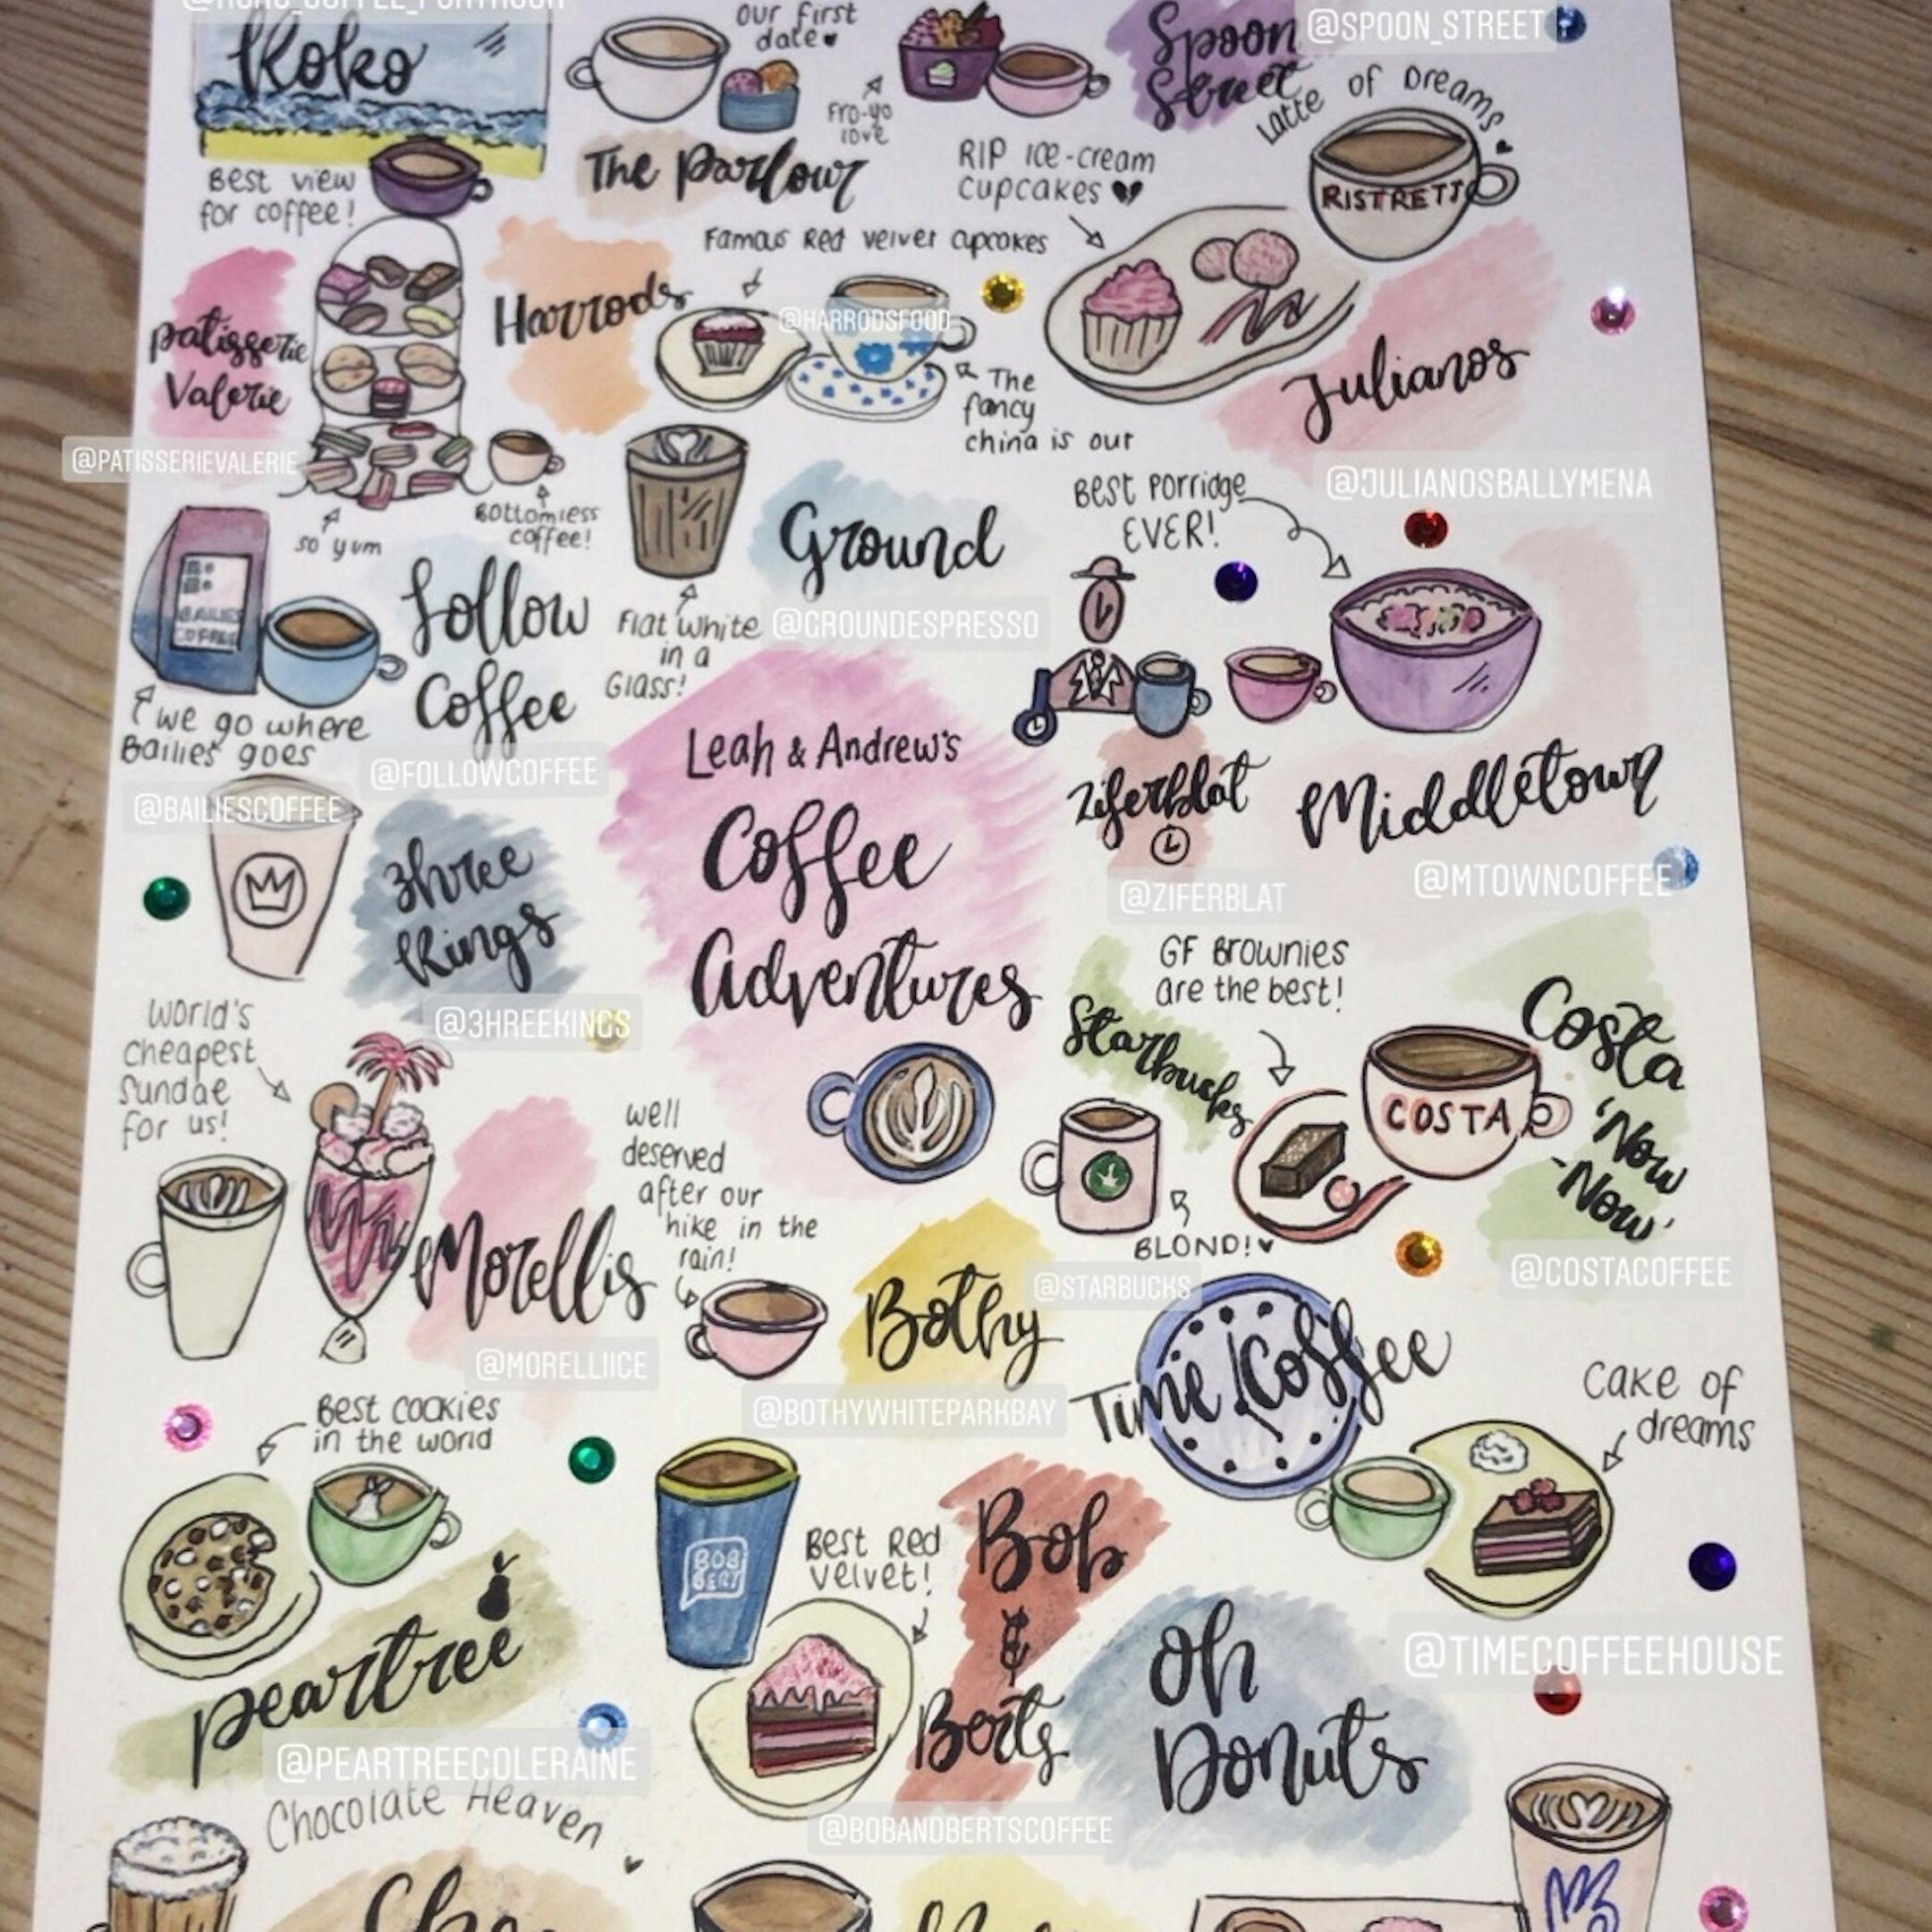 Koko
Best view
for coffee!
our first
date
The Parlour
Fro-yo
love
Spoon
Street
@SPOON_STREET
Latte of Dreams
RISTRETT
RIP ice-cream
cupcakes
Julianos
@JULIANOSBALLYMENA
Patisserie
Valerie
@PATISSERIEVALERIE
so yum
Bottomless
coffee!
Harrods
Famous Red velvet cupcakes
@HARRODSFOOD
The
fancy
china is out
Ground
@GROUNDESPRESSO
Flat white
in a
Glass!
Follow
Coffee
@FOLLOWCOFFEE
BAILIES
COFFEE
We go where
Bailies goes
@BAILIESCOFFEE
Best Porridge
EVER!
Ziferblat
@ZIFERBLAT
Middletown
@MTOWNCOFFEE
Leah & Andrew's
Coffee
Adventures
3hree
Kings
@3HREEKINGS
GF Brownies
are the best!
Starbucks
BLOND!
@STARBUCKS
COSTA
Costa
'Now
-Now'
@COSTACOFFEE
World's
Cheapest
Sundae
for us!
Morellis
@MORELLIICE
well
deserved
after our
hike in the
rain!
Bothy
@BOTHYWHITEPARKBAY
Time Coffee
Cake of
dreams
@TIMECOFFEEHOUSE
Best cookies
in the world
peartree
@PEARTREECOLERAINE
BOB
BERT
Best Red
velvet!
Bob
&
Berts
@BOBANDBERTSCOFFEE
Oh
Donuts
Chocolate Heaven